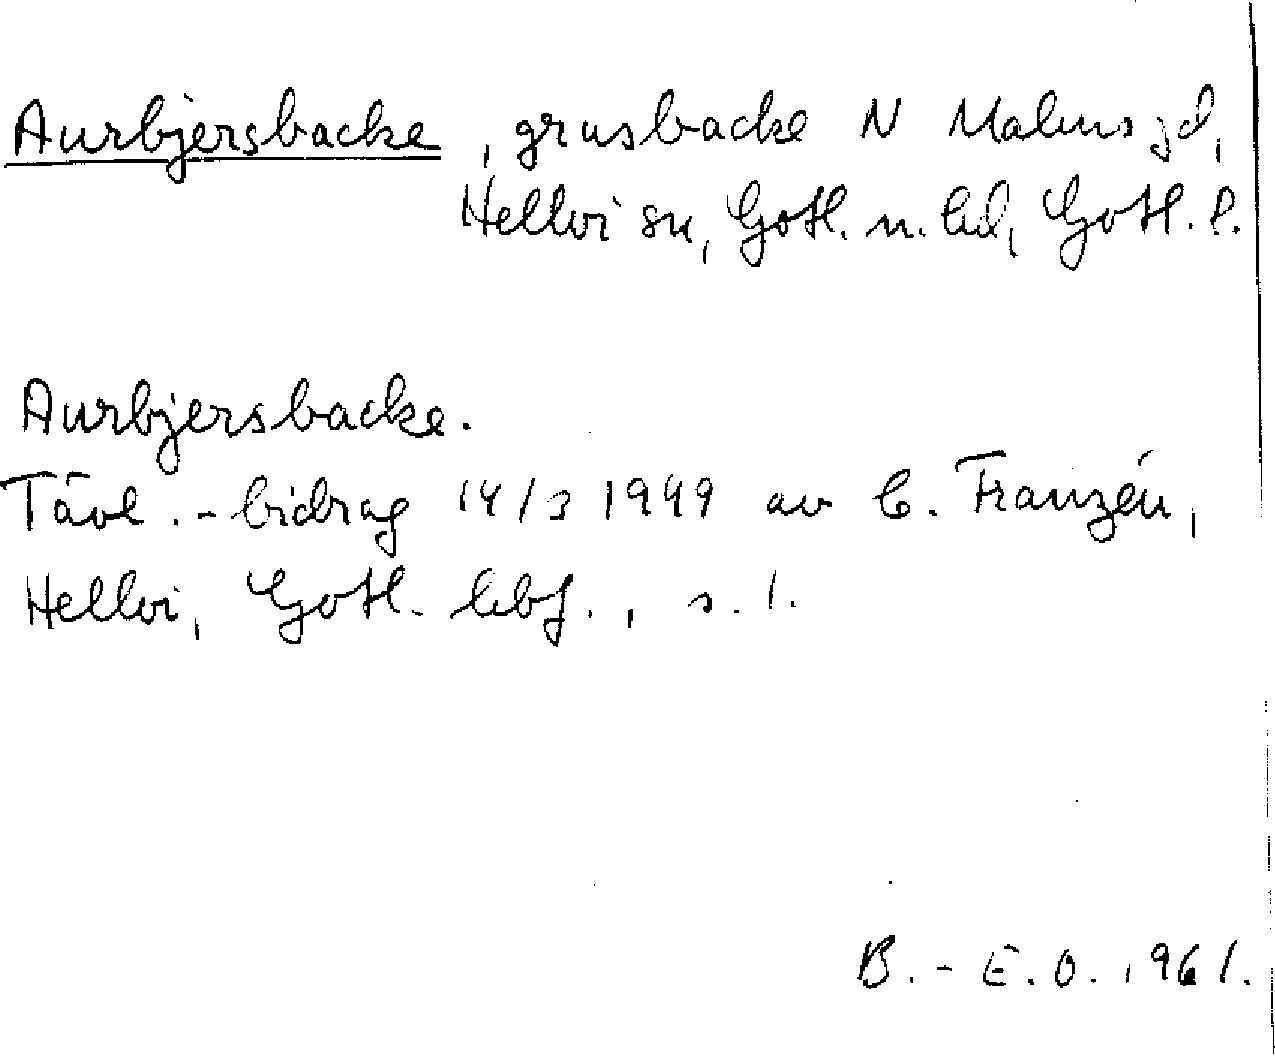 Aurbjersbacke, grusbacke N Malms gd,
Hellvi sn, Gotl. n. hd, Gotl. l.
Aurbjersbacke.
Tävl.-bidrag 14/3 1949 av C. Franzén,
Hellvi, Gotl. hbf., s. 1.
B.-E.O. 1961.